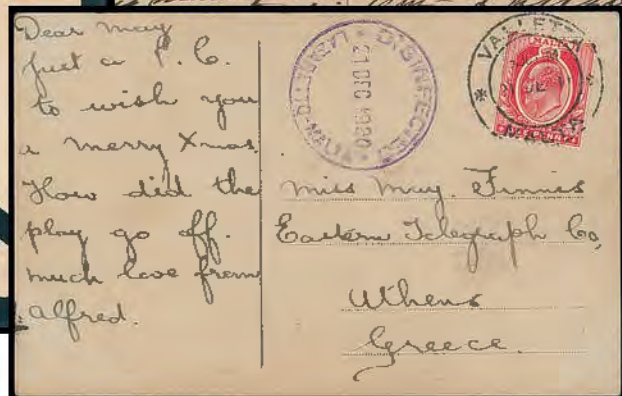 Dear May
Just a P.C.
to wish you
a merry Xmas.
How did the
play go off.
much love from
Alfred.
DISINFECTED
21 DEC 1920
LAZARETTO-MALTA
VALLETTA
MALTA
Miss May. Finnis
Eastern Telegraph Co,
Athens
Greece.